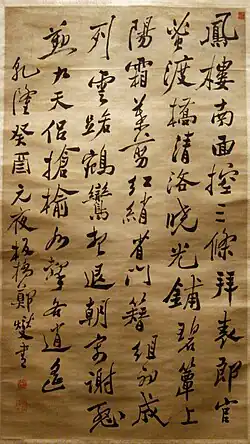 鳳樓南面控三條拜表郎官
蚤渡橋清洛曉光鋪碧簟上
陽霜葉剪紅綃省門簪組初成
列雲路鵷鸞想退朝寄謝殷
勤九天侶搶榆水擊各逍遙
乾隆癸酉元夜板橋鄭燮書